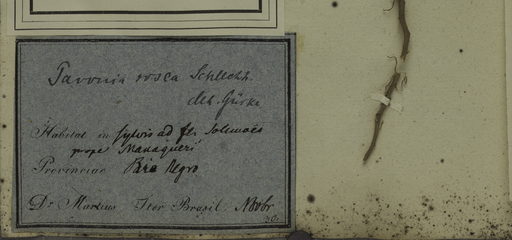 Pavonia rosea Schlecht.
det. Gürke
Habitat in sylvis ad fl. Solimoës
prope Manaqueri
Provinciae Rio Negro
Dr. Martius Iter Brasil. Novbr.